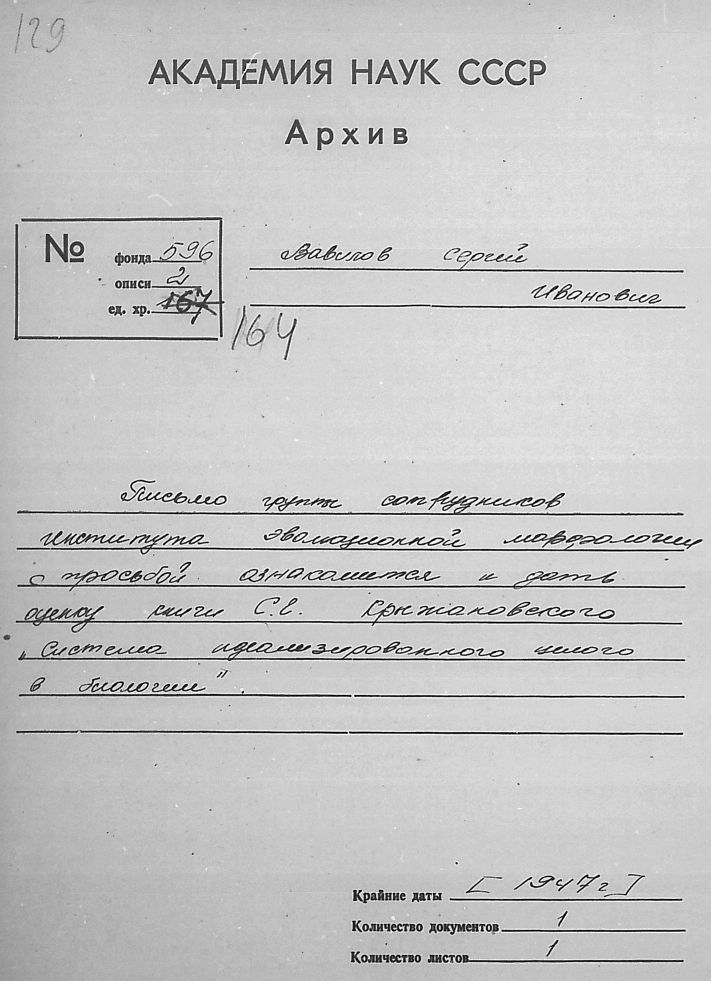 129
АКАДЕМИЯ НАУК СССР
Архив
№ фонда 596
описи 2
ед. хр. 167
164
Вавилов Сергей
Иванович
Письмо группы сотрудников
института эволюционной морфологии
с просьбой ознакомится и дать
оценку книги С.Г. Крыжановского
„Система идеализированного целого
в биологии".
Крайние даты [1947г]
Количество документов 1
Количество листов 1